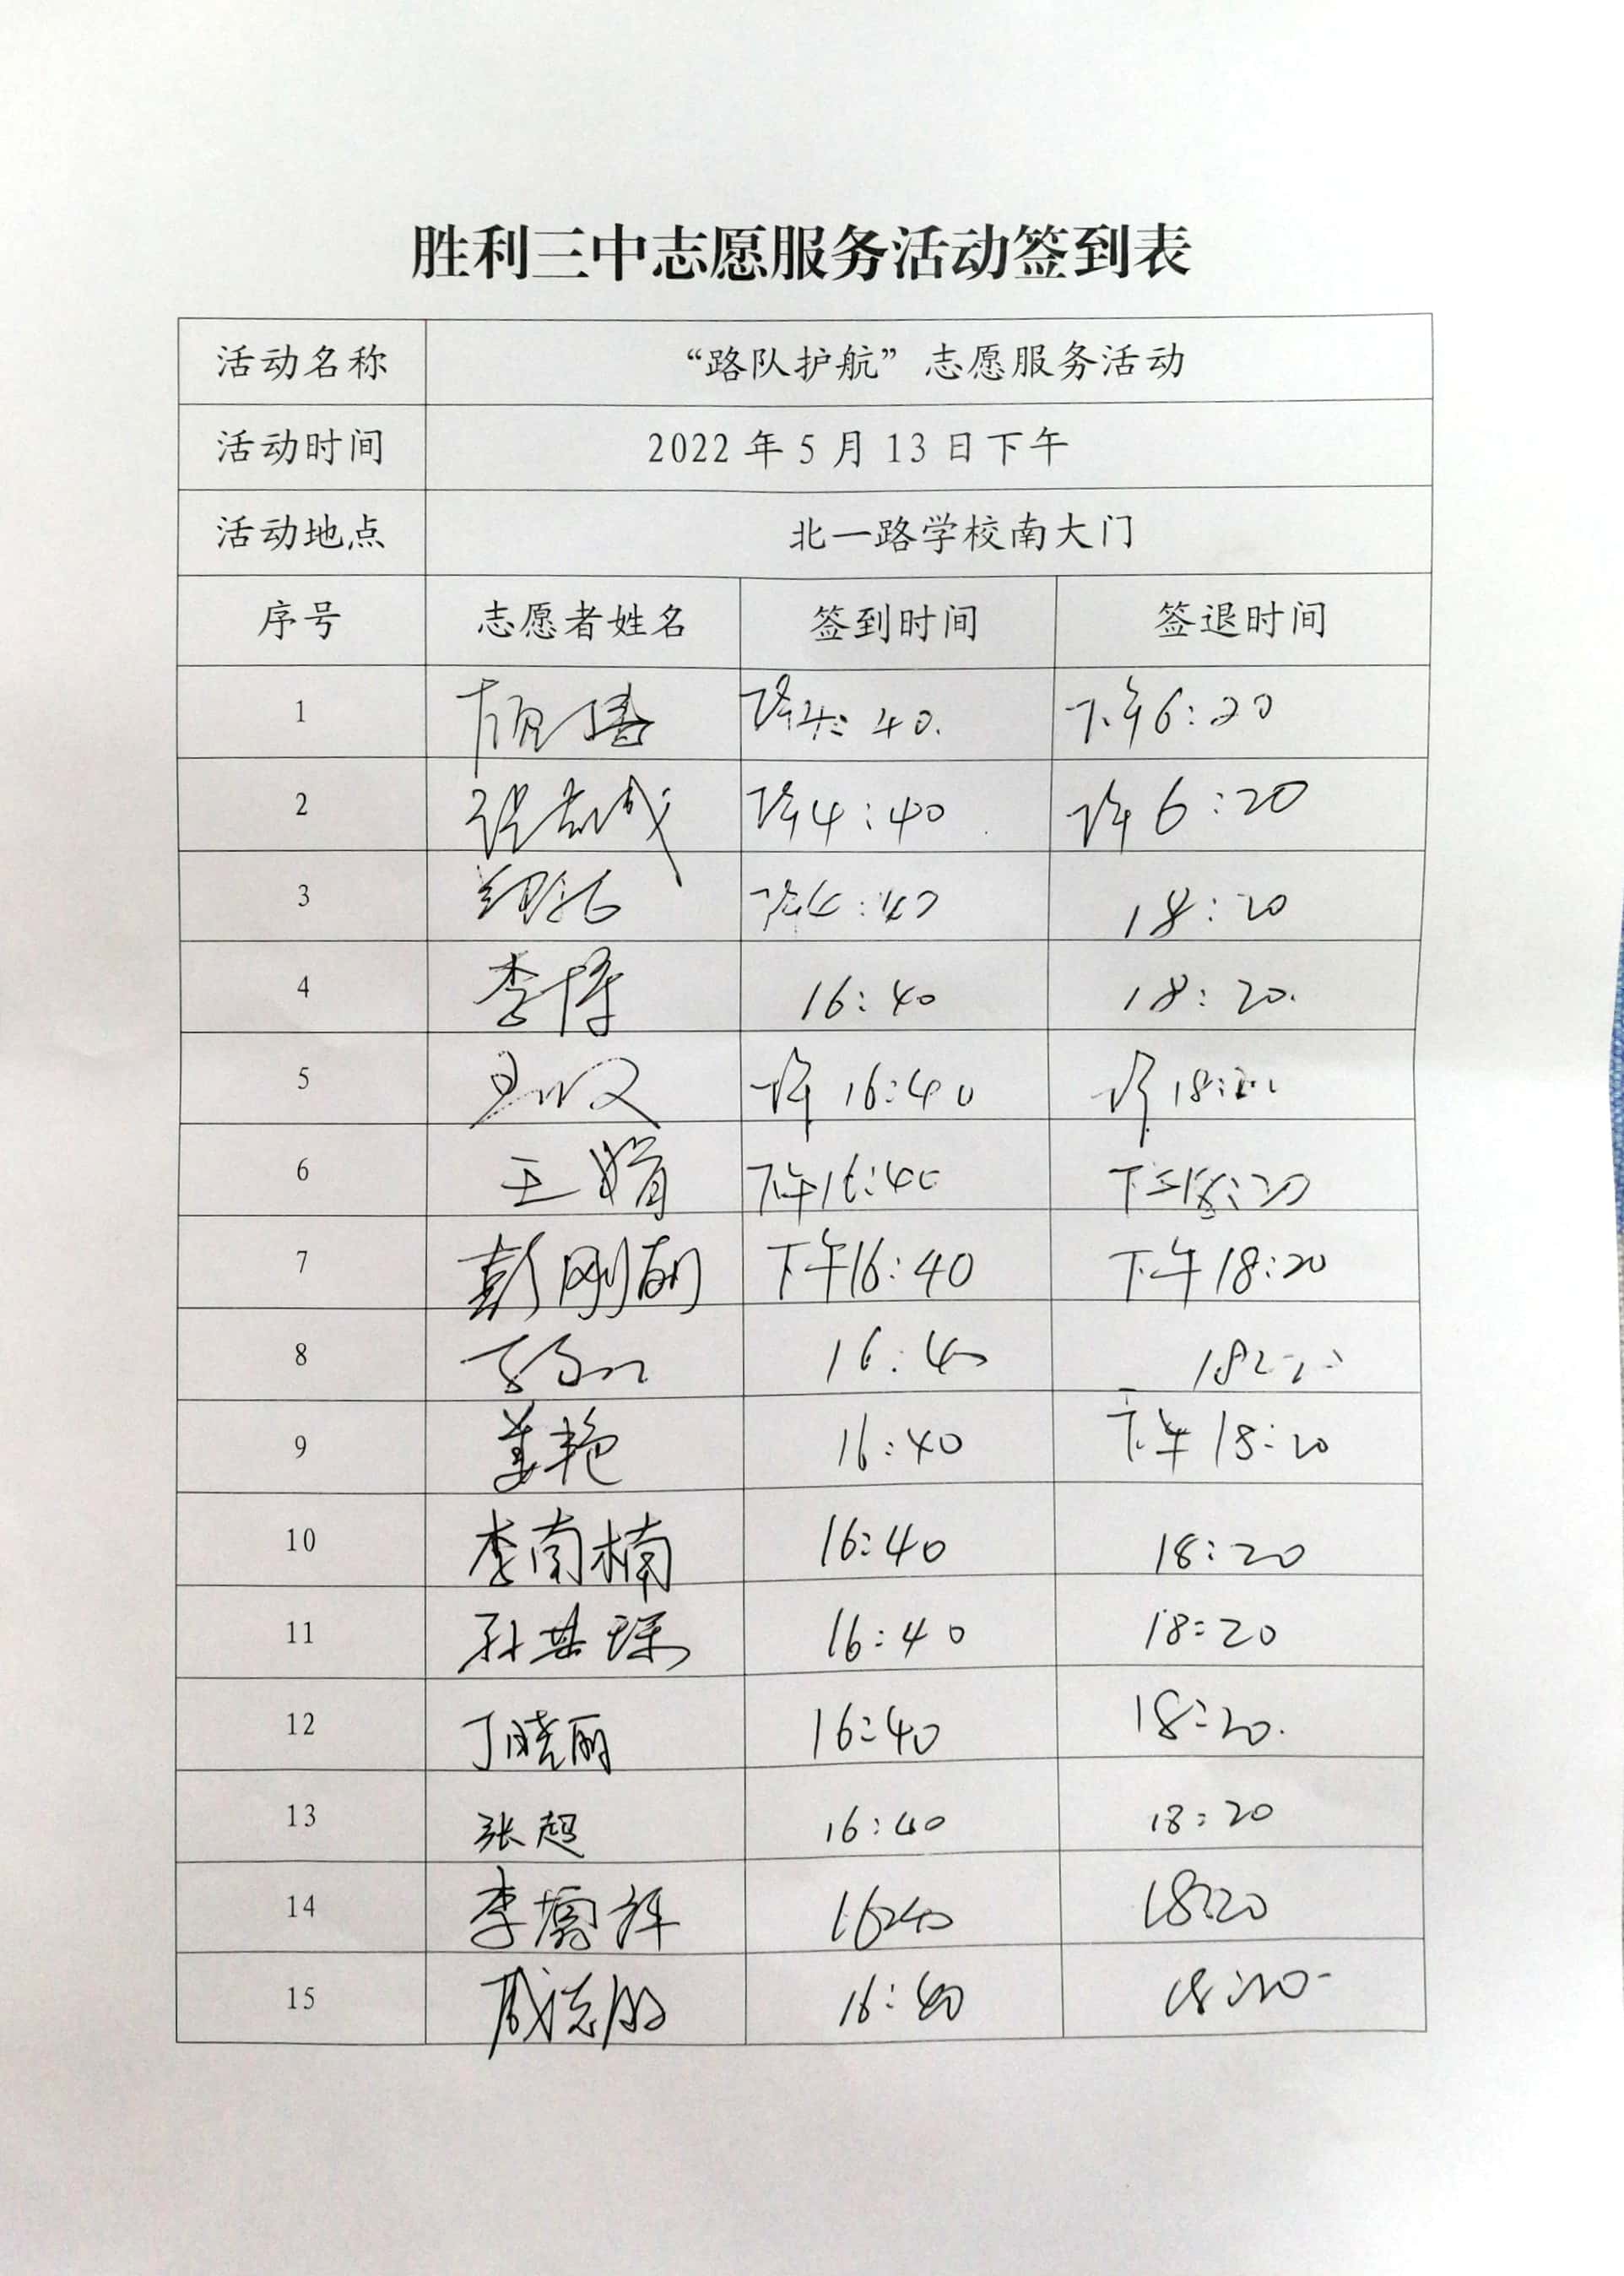 胜利三中志愿服务活动签到表
活动名称 “路队护航”志愿服务活动
活动时间 2022年5月13日下午
活动地点 北一路学校南大门
序号 志愿者姓名 签到时间 签退时间
1 下午4:40. 下午6:20
2 下午4:40 下午6:20
3 下午4:40 18:20
4 李博 16:40 18:20.
5 下午16:40 下午18:20
6 王娟 下午16:40 下午18:20
7 彭刚 下午16:40 下午18:20
8 16:40
9 姜艳 16:40 下午18:20
10 李南楠 16:40 18:20
11 孙其琛 16:40 18:20
12 丁晓丽 16:40 18:20.
13 张超 16:40 18:20
14 李 祥 16:40 18:20
15 16:40 18:20